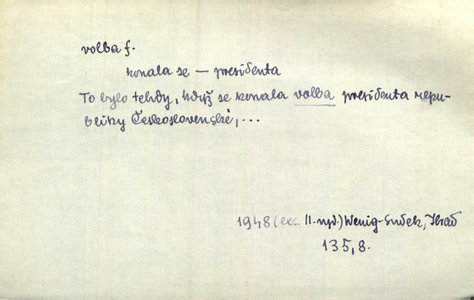 volba f.
konala se – presidenta
To bylo tehdy, když se konala volba presidenta repu-
bliky Československé, ...
1948 (exc. II. vyd.) Wenig-Sudek, Hrad
135, 8.